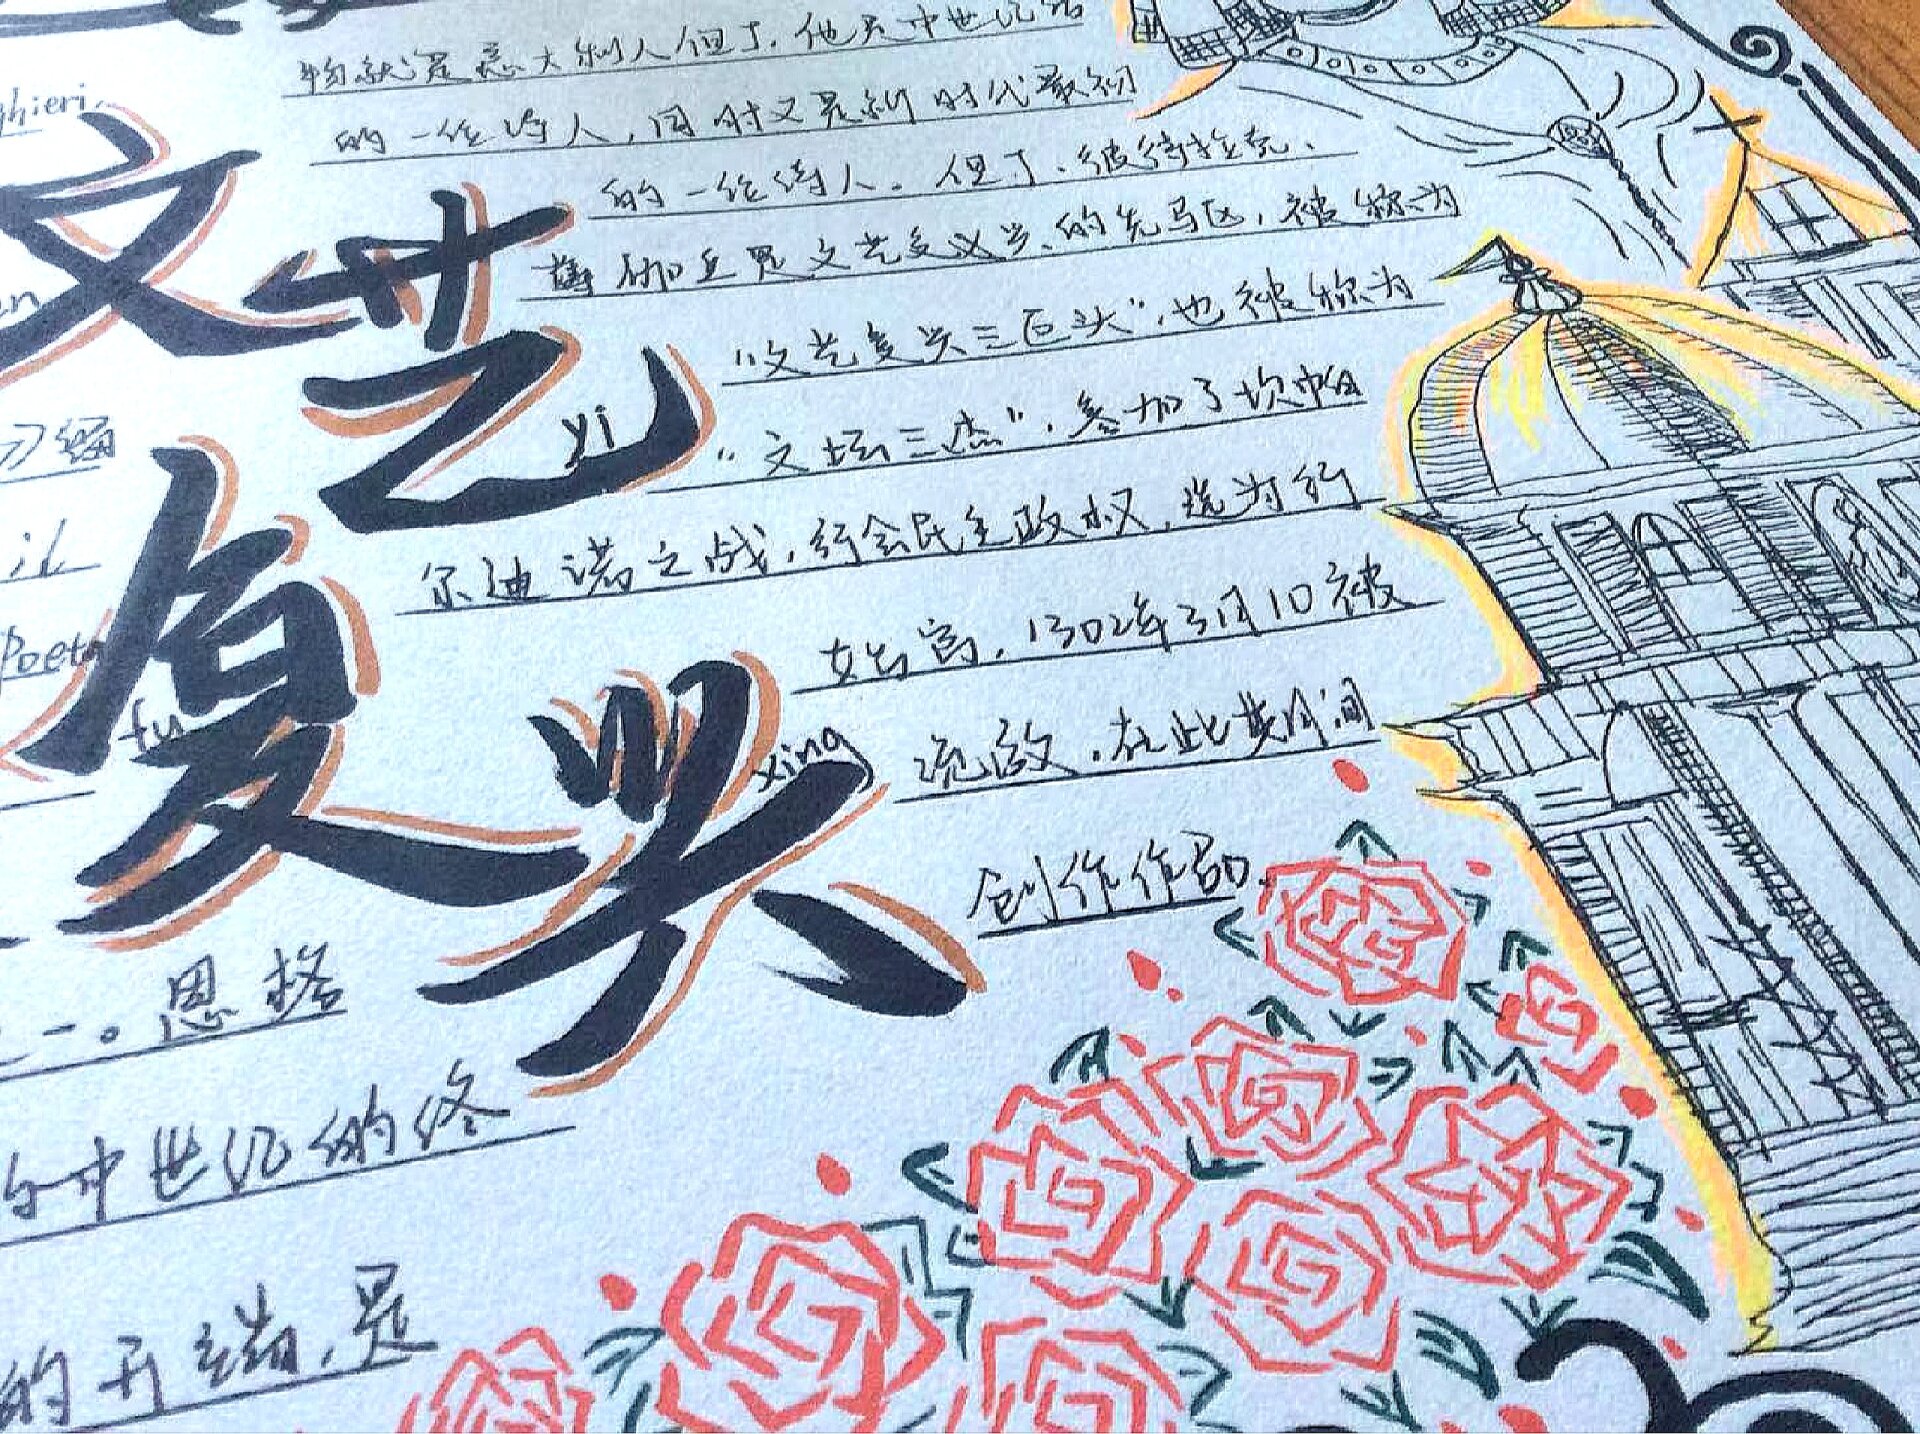 物就是意大利人但丁，他是中世纪
的一位诗人，同时又是新时代最初
的一位诗人。但丁、彼特拉克、
薄伽丘是文艺复兴的先马区，被称为
“文艺复兴三巨头”，也被称为
“文坛三杰”，参加了坎帕
尔迪诺之战，行会民主政权，选为行
政官，1302年3月10被
流放，在此期间
创作作品。
ghieri
文艺
yi
复兴
fu
xing
习编
il
Poeta
一。恩格
中世纪的终
的开端，是